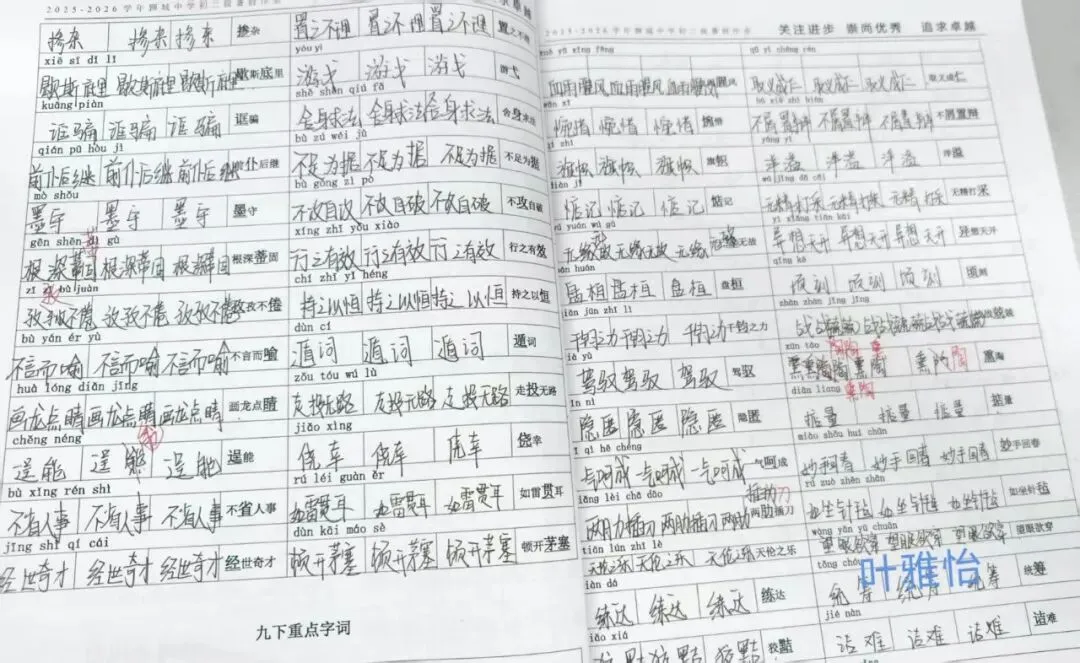 2025-2026学年聊城中学初三级暑假作业
掺杂 掺杂 掺杂 掺杂
xiē sī dǐ lǐ
歇斯底里 歇斯底里 歇斯底里 歇斯底里
kuāng piàn
诓骗 诓骗 诓骗 诓骗
qián pū hòu jì
前仆后继 前仆后继 前仆后继 前仆后继
mò shǒu
墨守 墨守 墨守 墨守
gēn shēn dì gù
根深蒂固 根深蒂固 根深蒂固 根深蒂固
孜孜不倦 孜孜不倦 孜孜不倦 孜孜不倦
bù yán ér yù
不言而喻 不言而喻 不言而喻 不言而喻
huà lóng diǎn jīng
画龙点睛 画龙点睛 画龙点睛 画龙点睛
chěng néng
逞能 逞能 逞能 逞能
bù xǐng rén shì
不省人事 不省人事 不省人事 不省人事
jīng shì qí cái
经世奇才 经世奇才 经世奇才 经世奇才
置之不理 置之不理 置之不理 置之不理
yóu yì
游弋 游弋 游弋 游弋
shě shēn qiú fǎ
舍身求法 舍身求法 舍身求法 舍身求法
bù zú wéi jù
不足为据 不足为据 不足为据 不足为据
bù gōng zì pò
不攻自破 不攻自破 不攻自破 不攻自破
xíng zhī yǒu xiào
行之有效 行之有效 行之有效 行之有效
chí zhī yǐ héng
持之以恒 持之以恒 持之以恒 持之以恒
dùn cí
遁词 遁词 遁词 遁词
zǒu tóu wú lù
走投无路 走投无路 走投无路 走投无路
jiǎo xìng
侥幸 侥幸 侥幸 侥幸
rú léi guàn ěr
如雷贯耳 如雷贯耳 如雷贯耳 如雷贯耳
dùn kāi máo sè
顿开茅塞 顿开茅塞 顿开茅塞 顿开茅塞
九下重点字词
关注进步 崇尚优秀 追求卓越
xuè yǔ xīng fēng
血雨腥风 血雨腥风 血雨腥风
wǎn xī
惋惜 惋惜 惋惜 惋惜
qí zhì
旗帜 旗帜 旗帜 旗帜
diàn jì
惦记 惦记 惦记 惦记
wú yuán wú gù
无缘无故 无缘无故 无缘无故 无缘无故
pán huán
盘桓 盘桓 盘桓 盘桓
qiān jūn zhī lì
千钧之力
jià yù
驾驭 驾驭 驾驭 驾驭
yǐn nì
隐匿 隐匿 隐匿 隐匿
yí qì hē chéng
一气呵成 一气呵成 一气呵成 气呵成
liǎng lèi chā dāo
两肋插刀 两肋插刀 两肋插刀
tiān lún zhī lè
天伦之乐 天伦之乐 天伦之乐 天伦之乐
liàn dá
练达 练达 练达 练达
jiǎo xiá
狡黠 狡黠 狡黠 狡黠
qǔ yì chéng rén
取义成仁 取义成仁 取义成仁 取义成仁
bú xiè zhì biàn
不屑置辩 不屑置辩 不屑置辩 不屑置辩
洋溢 洋溢 洋溢 洋溢
wú jīng dǎ cǎi
无精打采 无精打采 无精打采
yì xiǎng tiān kāi
异想天开 异想天开 异想天开 异想天开
顷刻 顷刻 顷刻
zhàn zhàn jīng jīng
战战兢兢
xūn táo
熏陶 熏陶 熏陶 熏陶
diān liáng
掂量 掂量 掂量 掂量
miào shǒu huí chūn
妙手回春 妙手回春 妙手回春 妙手回春
rú zuò zhēn zhān
如坐针毡 如坐针毡 如坐针毡 如坐针毡
wàng yǎn yù chuān
望眼欲穿 望眼欲穿 望眼欲穿 望眼欲穿
tǒng chóu
统筹 统筹 统筹 统筹
jié nàn
诘难 诘难 诘难 诘难
叶雅怡